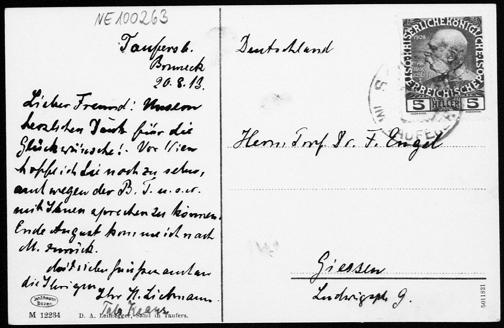 NE100263
Taufers b.
Bruneck
20.8.13.
Lieber Freund! Unsern
herzlichen Dank für die
Glückwünsche! Vor Wien
hoffe ich Sie noch zu sehen,
auch wegen der B. T. u.s.w.
mit Ihnen sprechen zu können.
Ende August komme ich nach
M. zurück.
Mit vielen Grüssen an
die Ihrigen
Ihr H. Liebmann
Deutschland
Herrn Prof Dr. F. Engel
Giessen
Ludwigstr 9.
1908
KAISERLICHE KÖNIGLICHE
ÖSTERREICHISCHE POST
5 HELLER 5
M 12234
D. A. Leimegger, Sand in Taufers.
5011831